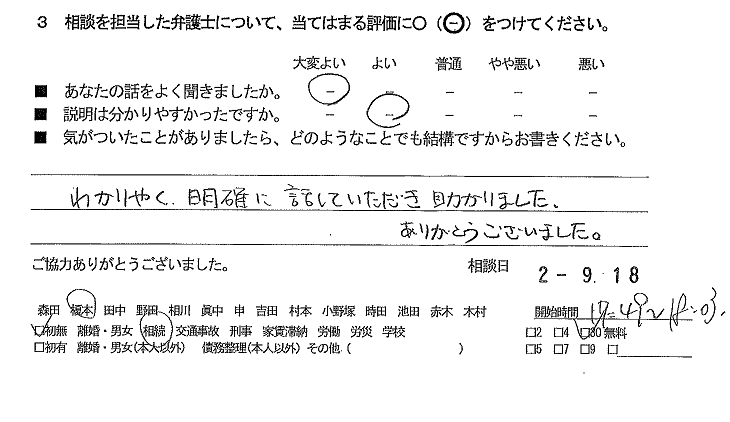 3 相談を担当した弁護士について、当てはまる評価に○（㊀）をつけてください。
大変よい よい 普通 やや悪い 悪い
■ あなたの話をよく聞きましたか。 － － － － －
■ 説明は分かりやすかったですか。 － － － － －
■ 気がついたことがありましたら、どのようなことでも結構ですからお書きください。
わかりやく、明確に 話していただき 助かりました、
ありがとうございました。
ご協力ありがとうございました。 相談日 2－9.18
森田 榎本 田中 野田 相川 眞中 申 吉田 村本 小野塚 時田 池田 赤木 木村 開始時間 17:49～18:03
□初無 離婚・男女 相続 交通事故 刑事 家賃滞納 労働 労災 学校 □2 □4 □30 無料
□初有 離婚・男女(本人以外) 債務整理(本人以外) その他（ ） □5 □7 □9 □